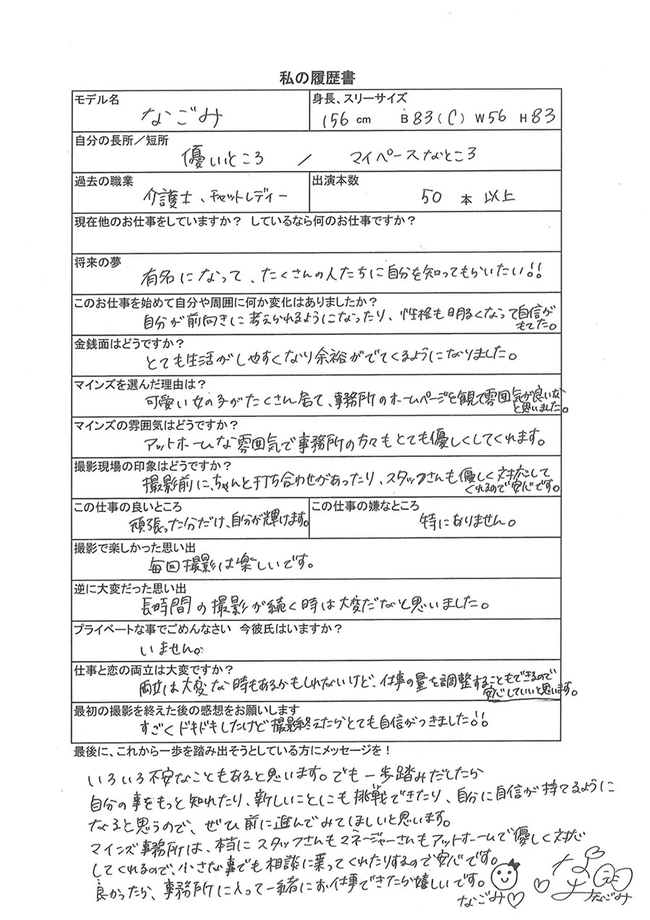 私の履歴書
モデル名
なごみ
身長、スリーサイズ
156cm B83(C) W56 H83
自分の長所／短所
優いところ / マイペースなところ
過去の職業
介護士、チャットレディー
出演本数
50本以上
現在他のお仕事をしていますか？ しているなら何のお仕事ですか？
将来の夢
有名になって、たくさんの人たちに自分を知ってもらいたい!!
このお仕事を始めて自分や周囲に何か変化はありましたか？
自分が前向きに考えられるようになったり、性格も明るくなって自信が
もてた。
金銭面はどうですか？
とても生活がしやすくなり余裕がでてくるようになりました。
マインズを選んだ理由は？
可愛い女の子がたくさん居て、事務所のホームページを観て雰囲気が良いな
と思いました。
マインズの雰囲気はどうですか？
アットホームな雰囲気で事務所の方々もとても優しくしてくれます。
撮影現場の印象はどうですか？
撮影前に、ちゃんと打ち合わせがあったり、スタッフさんも優しく対応して
くれるので安心です。
この仕事の良いところ
頑張った分だけ、自分が輝けます。
この仕事の嫌なところ
特にありません。
撮影で楽しかった思い出
毎回撮影は楽しいです。
逆に大変だった思い出
長時間の撮影が続く時は大変だなと思いました。
プライベートな事でごめんなさい 今彼氏はいますか？
いません。
仕事と恋の両立は大変ですか？
両立は大変な時もあるかもしれないけど、仕事の量を調整することもできるので
安心していいと思います。
最初の撮影を終えた後の感想をお願いします
すごくドキドキしたけど撮影終えたらとても自信がつきました!!
最後に、これから一歩を踏み出そうとしている方にメッセージを！
いろいろ不安なこともあると思います。でも一歩踏みだしたら
自分の事をもっと知れたり、新しいことにも挑戦できたり、自分に自信が持てるように
なると思うので、ぜひ前に進んでみてほしいと思います。
マインズ事務所は、本当にスタッフさんもマネージャーさんもアットホームで優しく対応
してくれるので、小さな事でも相談に乗ってくれたりするので安心です。
良かったら、事務所に入って一緒にお仕事できたら嬉しいです。
なごみ♡
なごみ